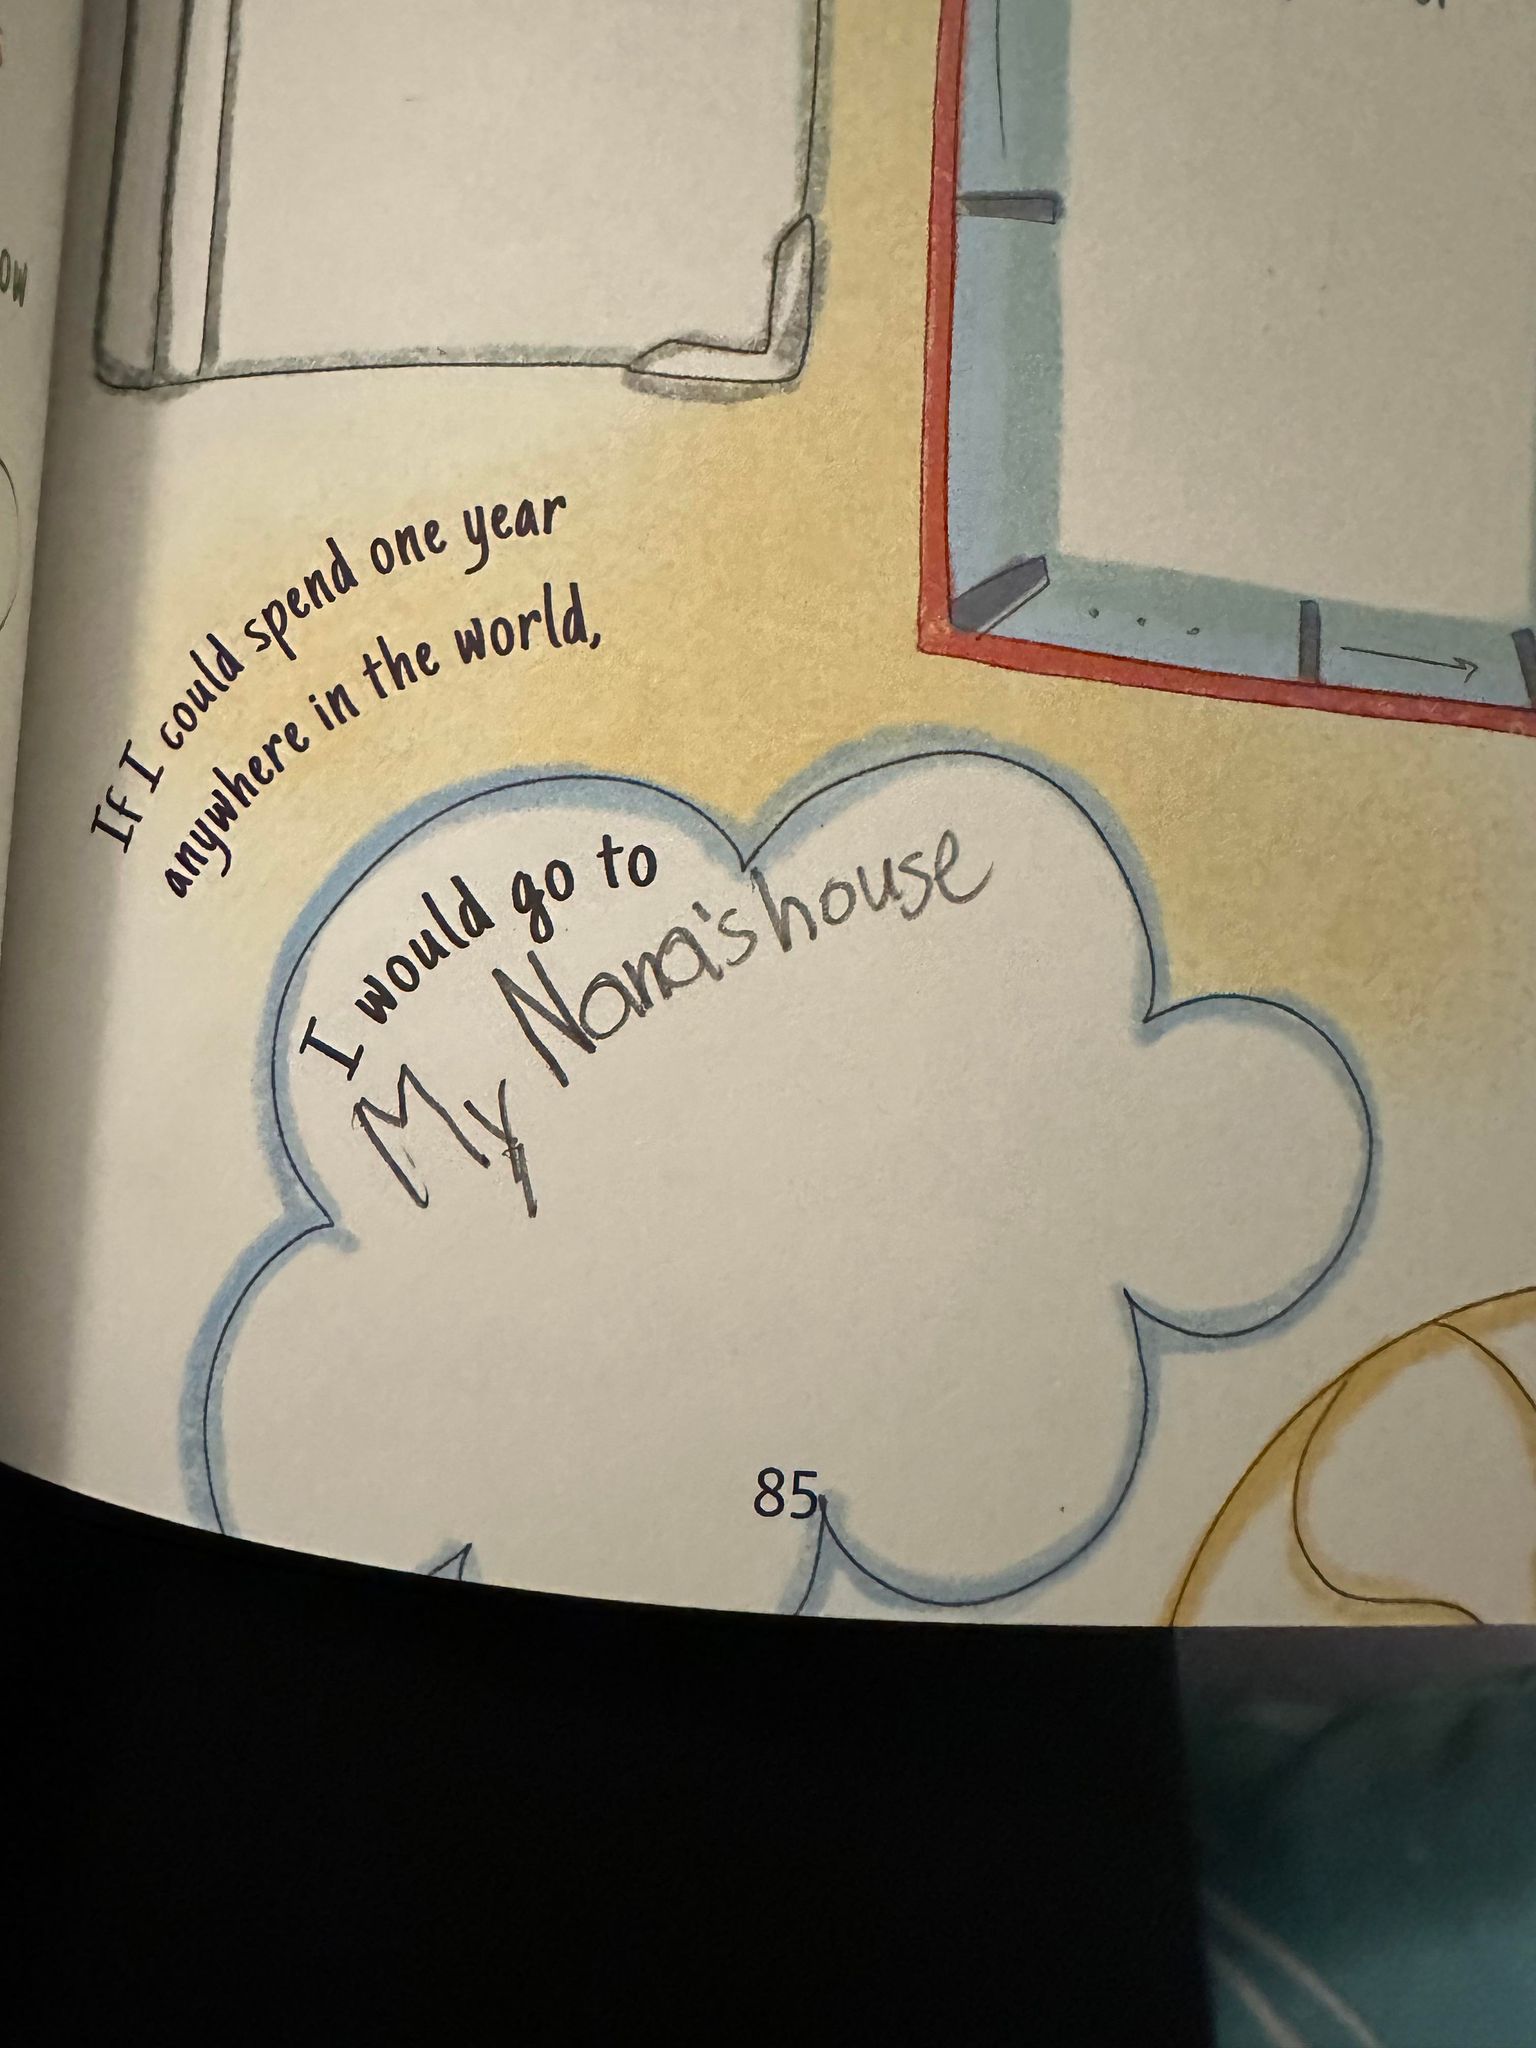 If I could spend one year
anywhere in the world,
I would go to
My Nana's house
85
ow